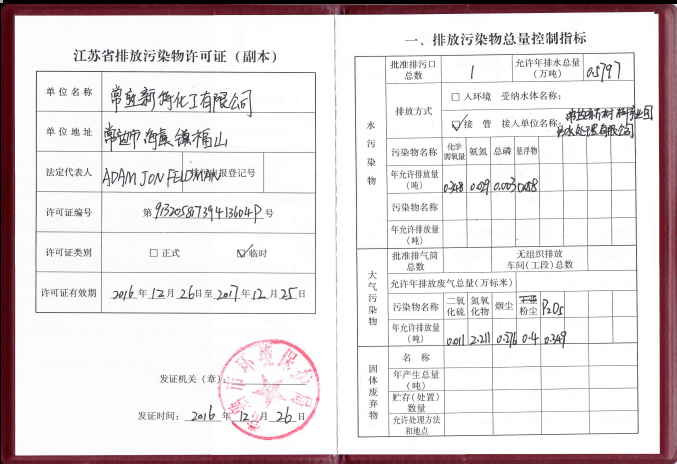 江苏省排放污染物许可证（副本）
单位名称
化工有限公司
单位地址
福山
法定代表人 ADAM JON FELDMAN 报登记号
许可证编号 第 号
许可证类别 □正式 ☑临时
许可证有效期 2016年12月26日至2017年12月25日
发证机关（章）：
市环境保护局
发证时间：2016年12月26日
一、排放污染物总量控制指标
水污染物
批准排污口总数 1 允许年排水总量（万吨） 0.5797
排放方式 □入环境 受纳水体名称：
☑接管 接入单位名称：
水处理有限公司
污染物名称 化学需氧量 氨氮 总磷 悬浮物
年允许排放量（吨） 0.003
污染物名称
年允许排放量（吨）
大气污染物
批准排气筒总数 无组织排放车间(工段)总数
允许年排放废气总量(万标米)
污染物名称 二氧化硫 氮氧化物 烟尘 粉尘 P2O5
年允许排放量（吨） 0.011 2.211 0.276 0.4 0.349
固体废弃物
名称
年产生总量（吨）
贮存(处置)数量
允许处理方法和地点